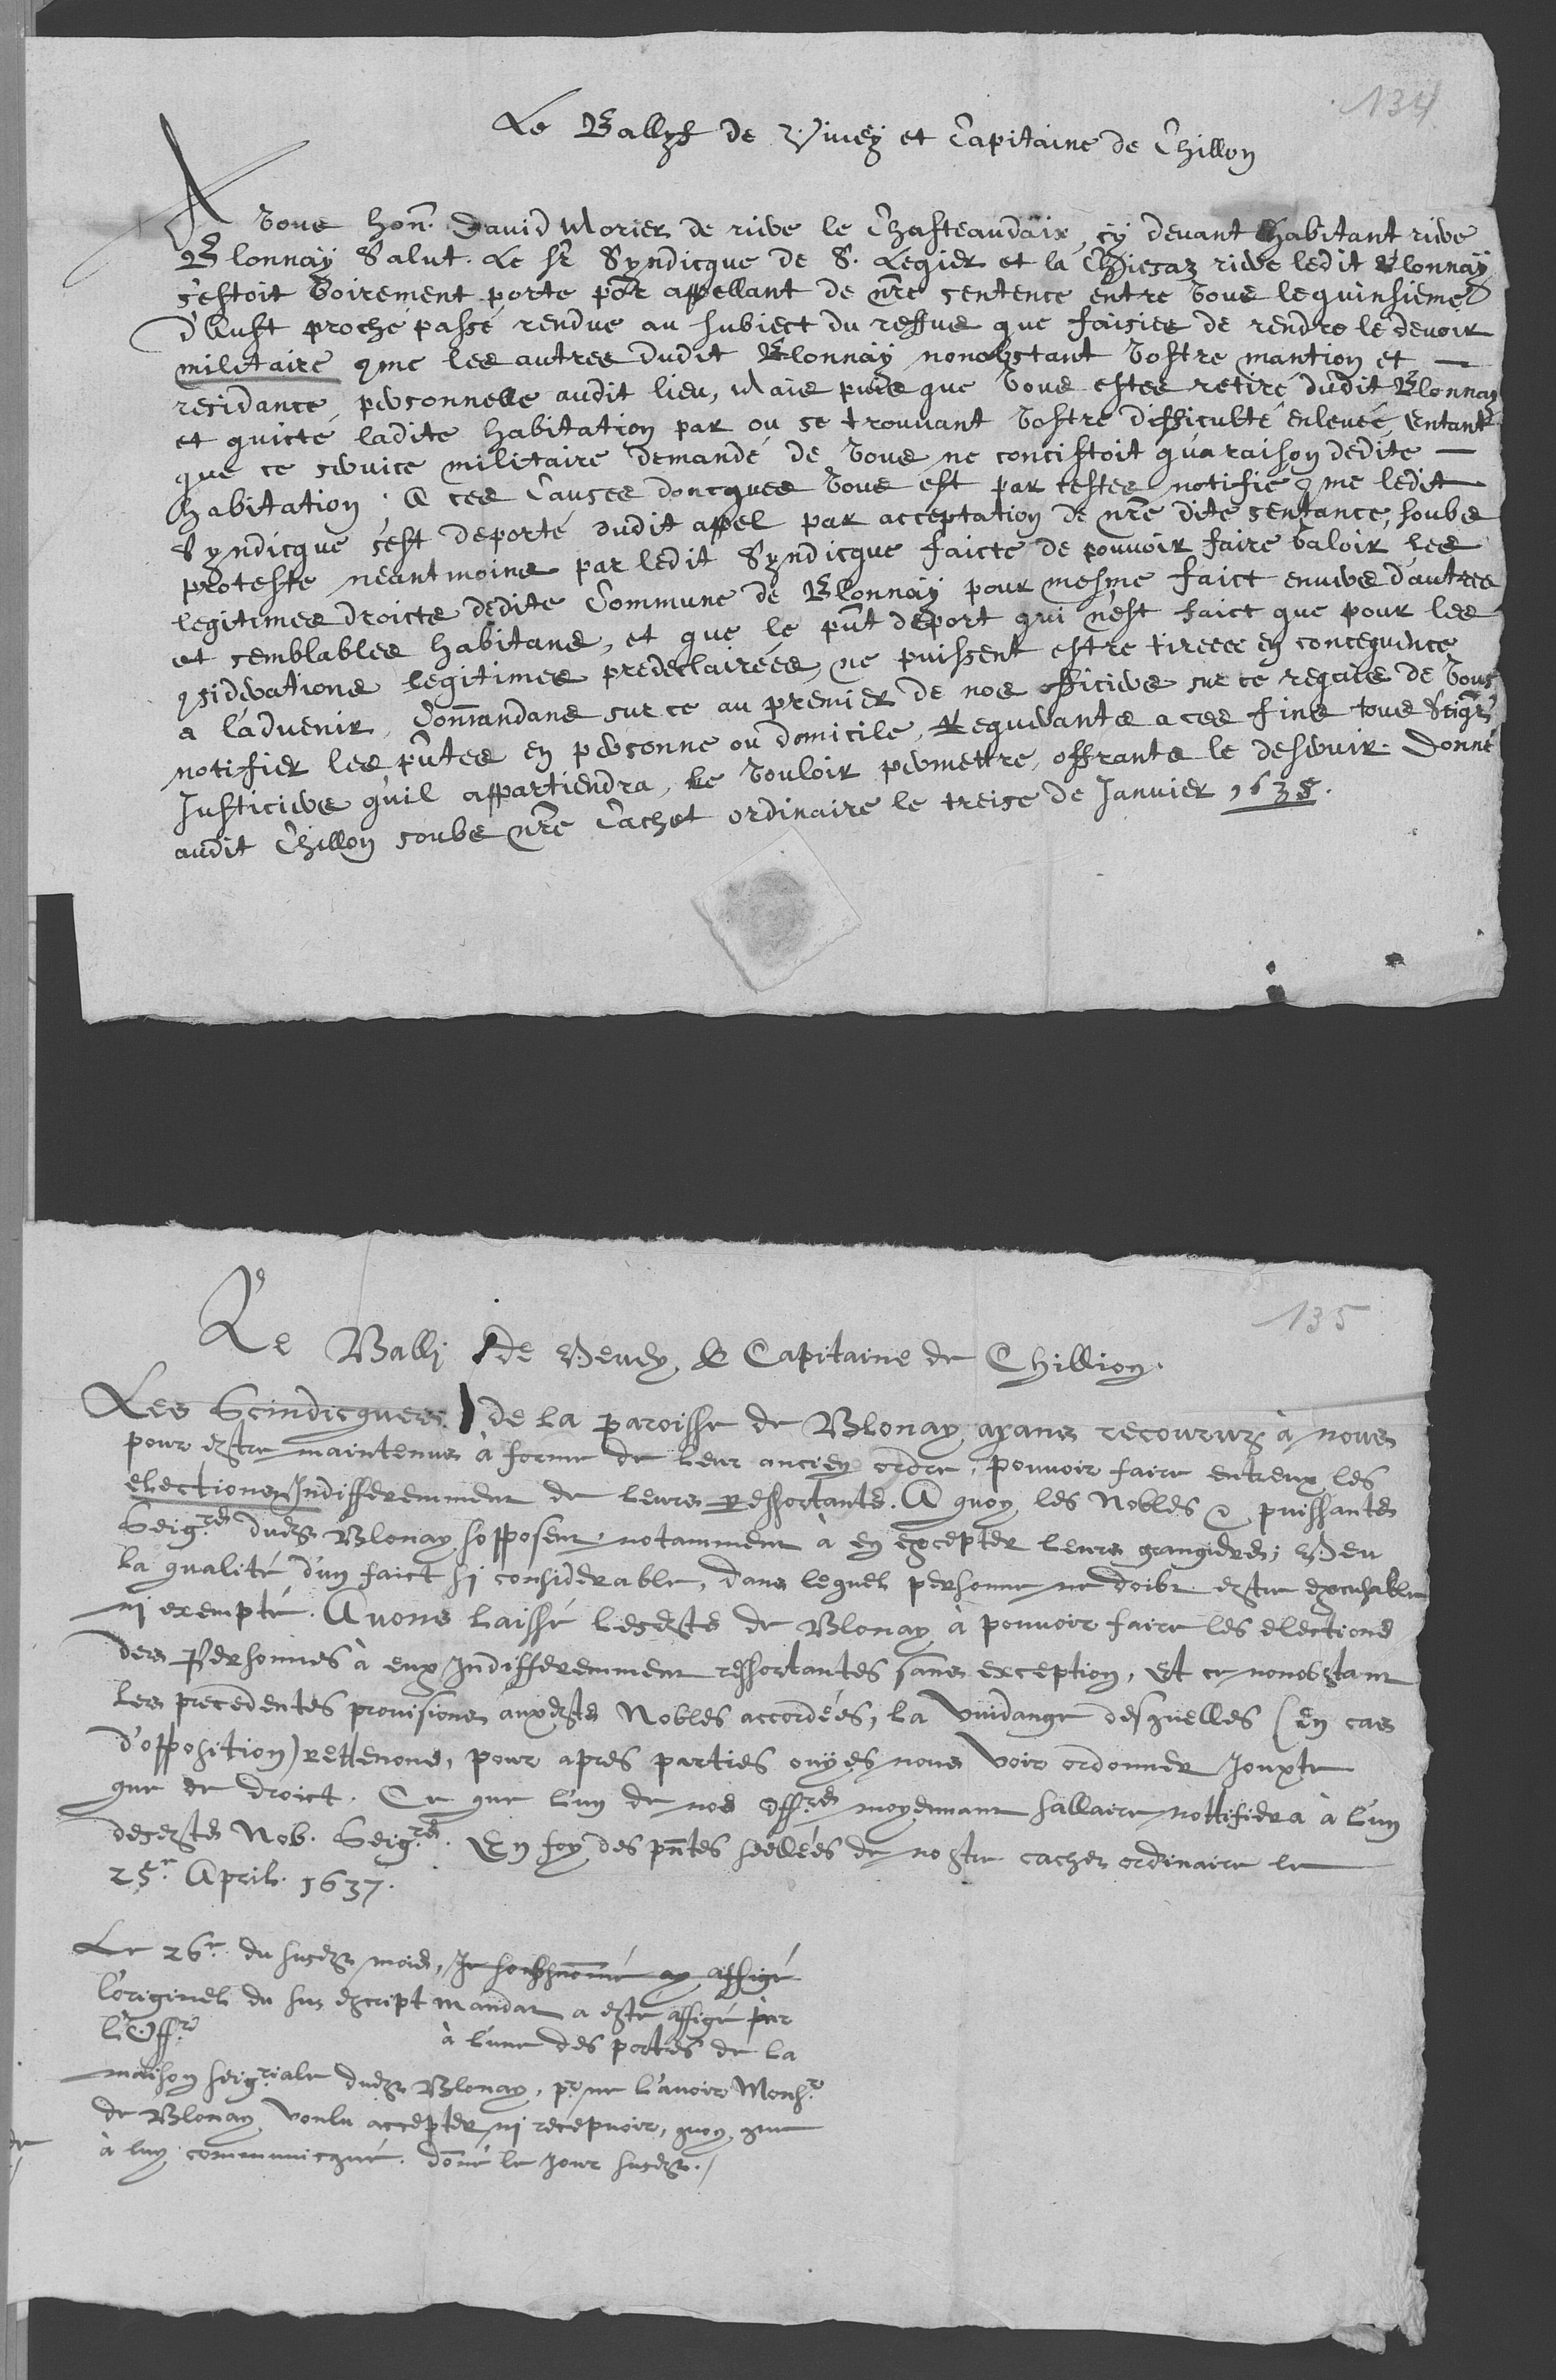 134
Le Ballyf de Vivey et Capitaine de Chillon
A vous hon. David Morier de rive le Chasteaudaix, cy devant habitant rive
Blonnay Salut. Le Sr Syndicque de S. Legier et la Chiesaz rive ledit Blonnay
s'estoit voirement porte por appellant de nre sentence entre vous le quinsieme
d'Aust proche passé rendue au subiect du reffus que faisies de rendre le devoir
militaire qme les autres dudit Blonnay nonobstant vostre mantion et
residance personnelle audit lieu, Mais puis que vous estes retiré dudit Blonnay
et quicté ladite habitation par ou se trouvant vostre difficulté enlevée, entant
que ce service militaire demandé de vous ne concistoit qu'a raison dedite
habitation. A ces Causes doncques vous est par cestes notifie qme ledit
Syndicque s'est deporté dudit appel par acceptation de nre dite sentance, soubs
proteste neantmoins par ledit Syndicque faicte de pouvoir faire valoir les
legitimes droicts dedite Commune de Blonnay pour mesme faict envers d'autres
et semblables habitans, et que le pnt deport qui n'est faict que pour les
qsiderations legitimes predeclairées, ne puissent estre tirees en concequence
a l'advenir, Commandans sur ce au premier de nos officiers sur ce requis de vous
notifier les pntes en personne ou domicile, Requerants a ces fins tous Seigrs
Justiciers qu'il appartiendra, le vouloir permettre, offrants le deservir. Donné
audit Chillon soubs nre Cachet ordinaire le treise de Janvier 1638.
135
Le Balli de Vevey & Capitaine de Chillion.
Les Scindicques de la paroisse de Blonay ayans recouruz à nous
pour estre maintenus à forme de leur ancien ordre, pouvoir faire entreux les
elections Indifferemment de leurs Ressortants. A quoy les Nobles & puissants
Seigrs dudt Blonay sopposent notamment à en excepter leurs grangiers; Veu
la qualité d'un faict si considerable, dans lequel personne ne doibt estre excusable
ni exempté. Avons laissé lesdts de Blonay à pouvoir faire les elections
des Personnes à eux Indifferemment ressortantes sans exception, Et ce nonobstant
les precedentes provisions auxdts Nobles accordées, la vuidange desquelles (en cas
d'opposition) rettenons, pour apres parties ouÿes nous voir ordonner Jouxte
que de droict. Ce que l'un de nos Offrs moyennant sallaire nottifiera à l'un
desdts Nob. Seigrs. En foy des pntes seéllées de nostre cachet ordinaire le
25e April. 1637.
Le 26e du susdt mois, Je soubsnommé ay affigé
l'originel du sus escript mandat a esté affigé par
l'Offr à l'une des portes de la
maison seigriale dudt Blonay, pr ne l'avoir Monsr
de Blonay voulu accepter ni recepvoir, quoy que
à luy communicqué. doné le jour susdt.